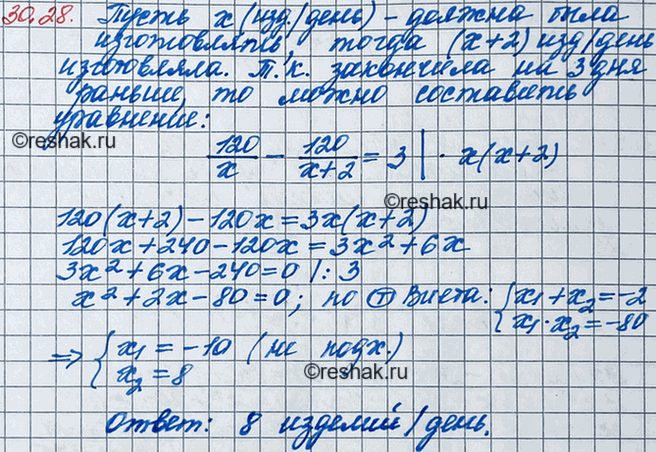 30.28. Пусть x (изд./день) - должна была
изготовлять, тогда (x+2) изд/день
изготовляла. Т.к. закончила на 3 дня
раньше, то можно составить
уравнение:
©reshak.ru
120/x - 120/(x+2) = 3 | · x(x+2)
©reshak.ru
120(x+2) - 120x = 3x(x+2)
120x + 240 - 120x = 3x² + 6x
3x² + 6x - 240 = 0 |: 3
x² + 2x - 80 = 0; по Ⓣ Виета: { x₁ + x₂ = -2
x₁ · x₂ = -80
⇒ { x₁ = -10 (не подх.)
x₂ = 8
©reshak.ru
Ответ: 8 изделий/день.